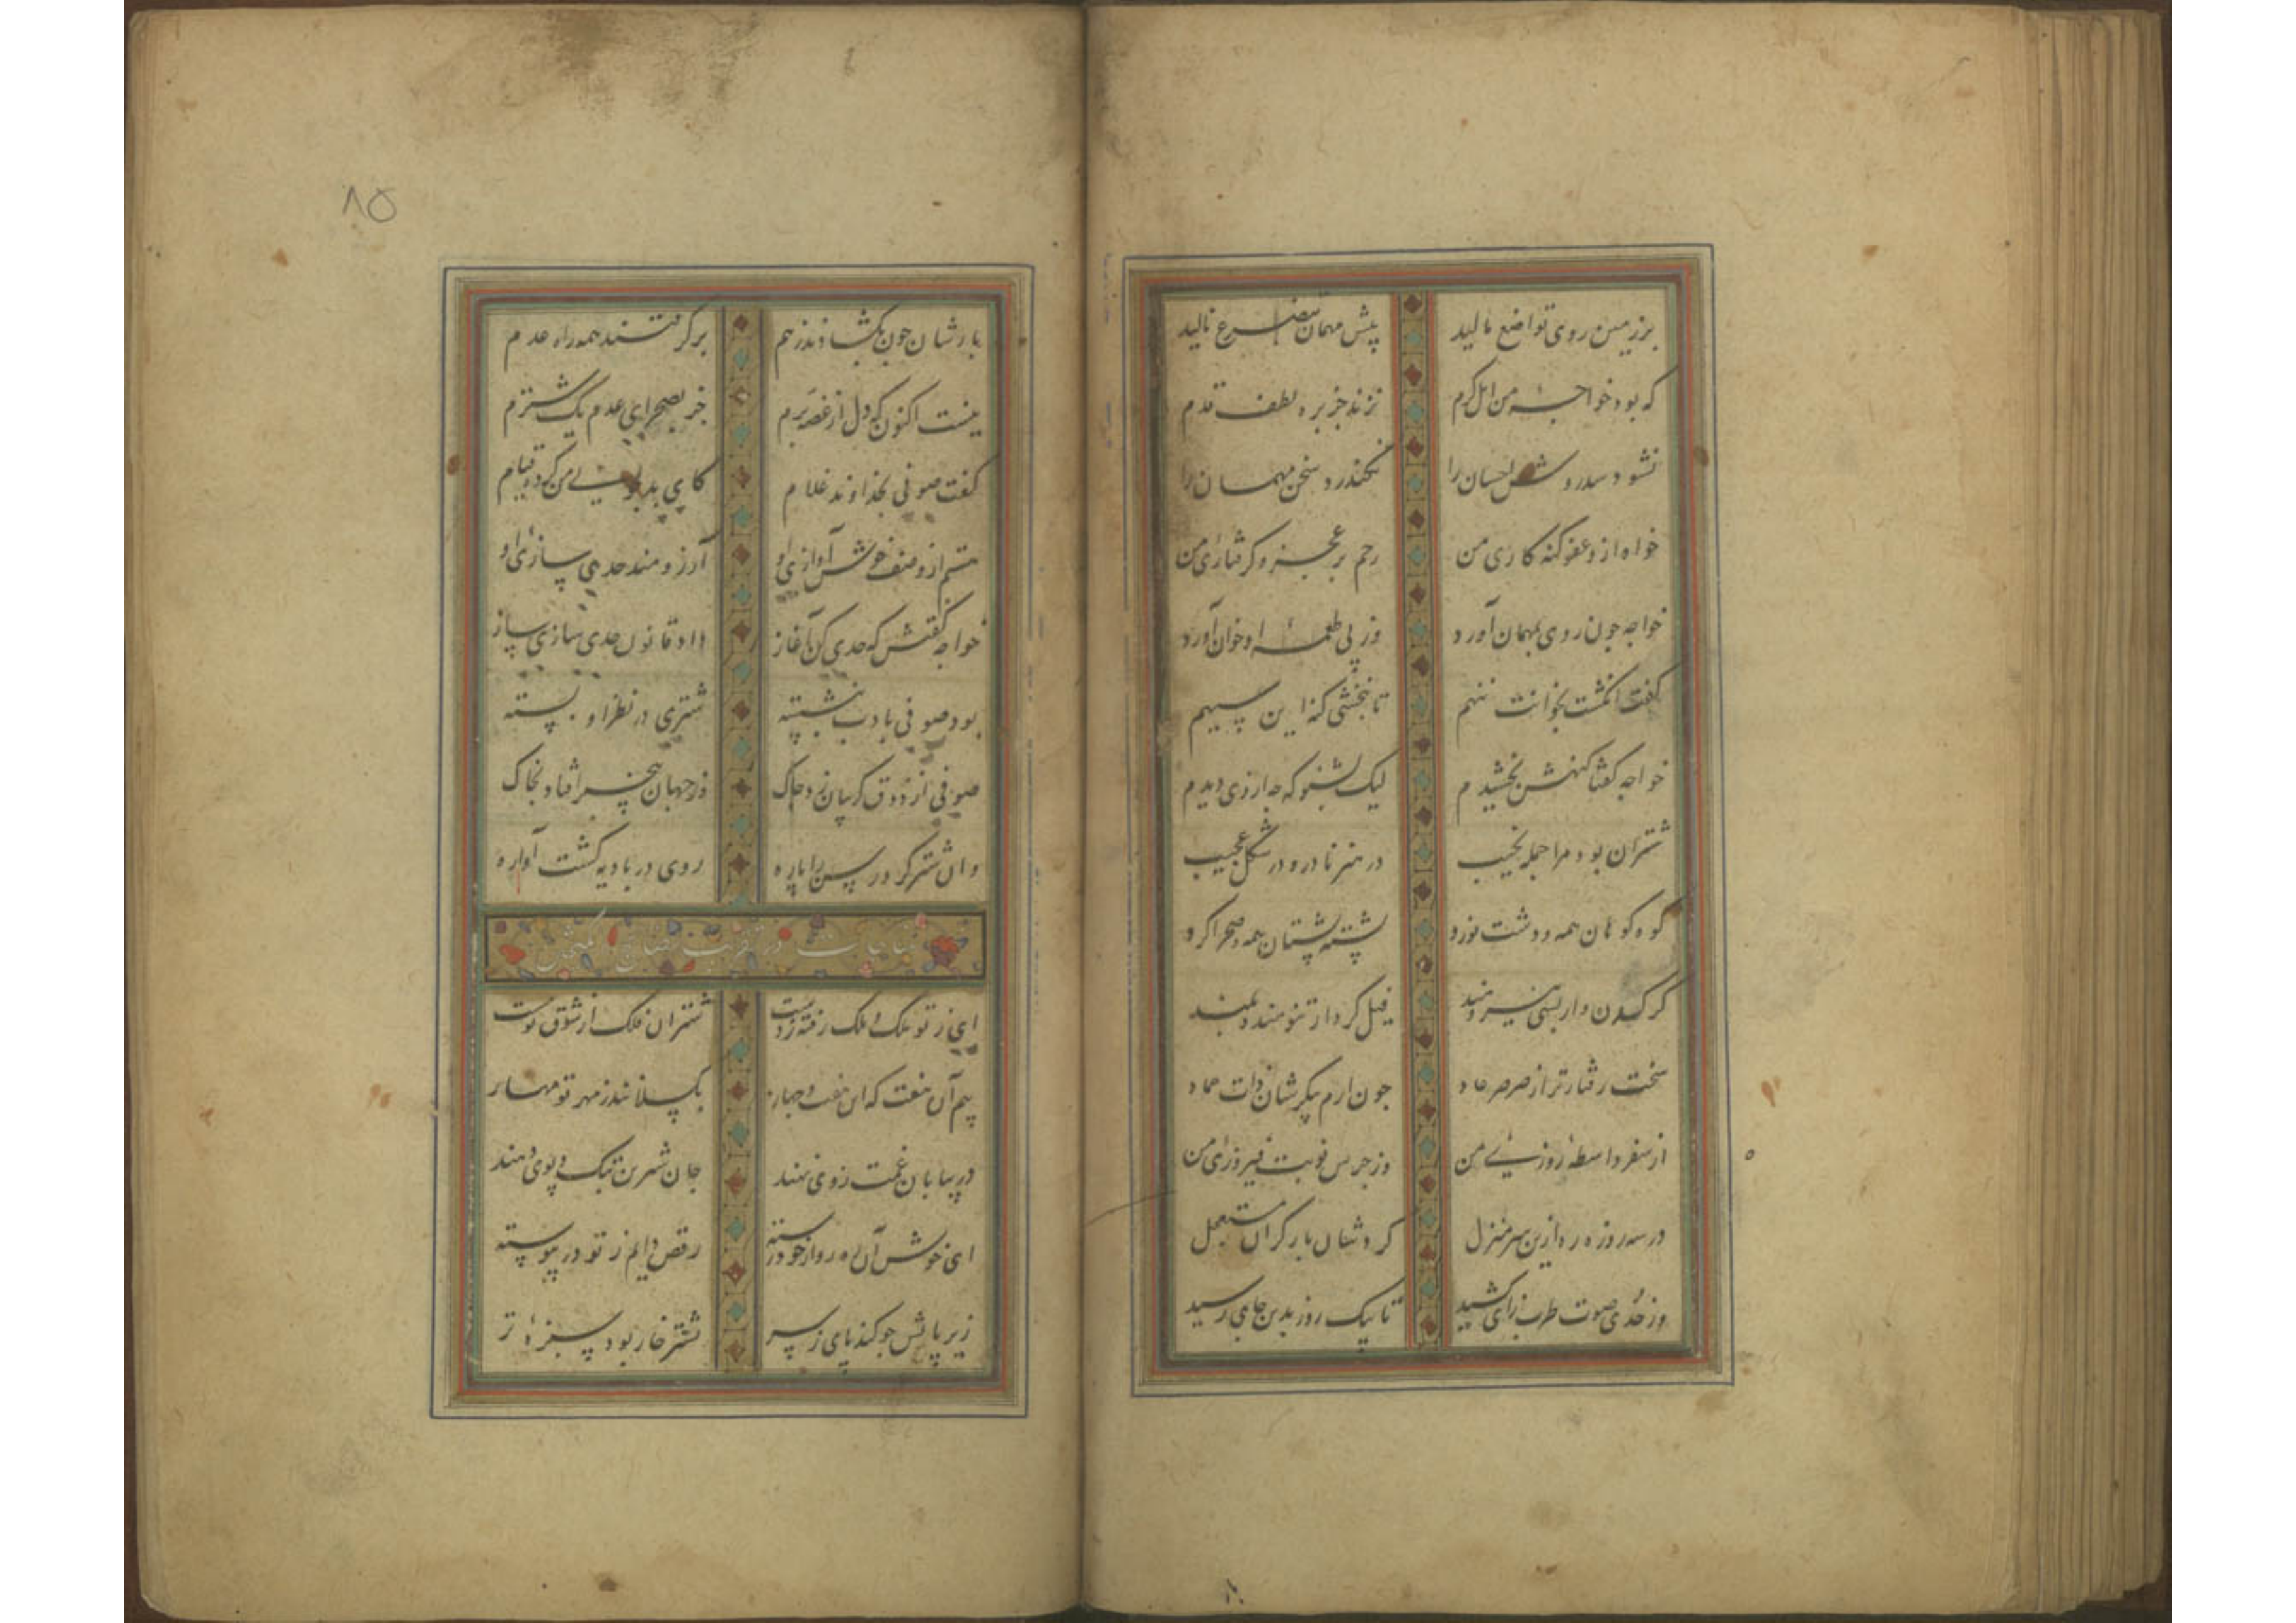 بر زمین روی تواضع مالید پیش مهمان بتضرع نالید
که بود خواجه من اهل کرم نزند جز بره لطف قدم
نشود احسان را نگذرد سخن مهمان را
خواه ازو عفو گنه کاری من رحم بر عجز و گرفتاری من
خواجه چون روی بمهمان آورد وز پی طعمه او خوان آورد
گفت انگشت بخوانت ننهم تا نبخشی گنه این سیهم
خواجه گفتا گنهش بخشیدم لیک بشنو که چه از وی دیدم
شتران بود مرا جمله نجیب در هنر نادر و در شکل عجیب
کوه کوهان همه و دشت نورد پشته پشتان همه و صحرا گرد
کرگدن وار بسی نیرومند فیل کردار تنومند و بلند
سخت رفتار تر از صرصر عاد چون ارم پیکرشان ذات عماد
از سفر واسطه روزی من وز جرس نوبت فیروزی من
در سه روزه ره ازین سر منزل کردشان بار گران مستعجل
وز حدی صوت طرب زای کشید تا بیک روز بدین جای رسید
۸۵
بارشان چون بگشادند ز هم برگرفتند همه راه عدم
نیست اکنون که دل از غصه پرم جز بصحرای عدم یک شترم
گفت صوفی بخداوند غلام کای من کرده قیام
هستم از وصف خوش آوازی او آرزومند حدی سازی او
خواجه گفتش که حدی کن آغاز داد قانون حدی سازی ساز
بود صوفی بادب بنشسته شتری در نظر او بسته
صوفی از ذوق گریبان زد چاک وز جهان بیخبر افتاد بخاک
وان شتر کرد رسن را پاره روی در بادیه گشت آواره
مناجات در
ای ز تو ملک و ملک رفته ز دست شتران فلک از شوق تو مست
بیم آن هست که این هفت و چهار بگسلانند ز مهر تو مهار
در بیابان غمت روی نهند جان شیرین بتک و پوی دهند
ای خوش آن راه رو از خود رسته رقص دایم ز تو در پیوسته
زیر پایش چو کند پای ز سر نشتر خار بود سبزه تر